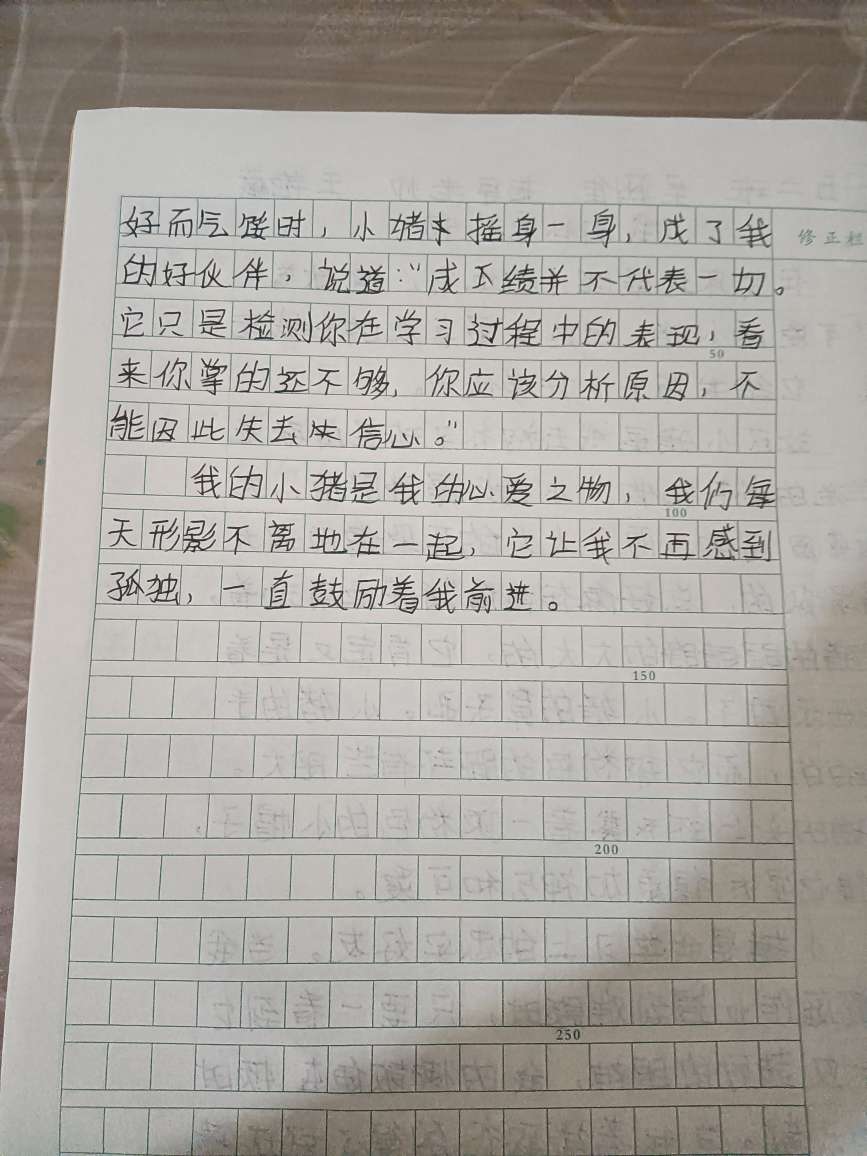 好而气馁时，小猪摇身一身，成了我
修正栏
的好伙伴，说道：“成绩并不代表一切。
它只是检测你在学习过程中的表现，看
50
来你掌的还不够，你应该分析原因，不
能因此失去信心。”
我的小猪是我的心爱之物，我们每
100
天形影不离地在一起，它让我不再感到
孤独，一直鼓励着我前进。
150
200
250